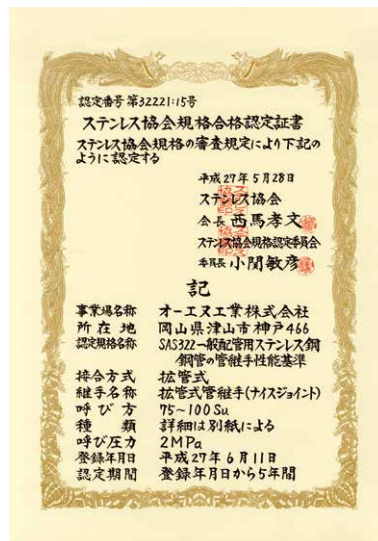 認定番号 第32221:15号
ステンレス協会規格合格認定証書
ステンレス協会規格の審査規定により下記の
ように認定する
平成27年5月28日
ステンレス協会
会長 西馬孝文
ステンレス協会規格認定委員会
委員長 小関敏彦
記
事業場名称 オーエヌ工業株式会社
所在地 岡山県津山市神戸466
認定規格名称 SAS322一般配管用ステンレス鋼
鋼管の管継手性能基準
接合方式 拡管式
継手名称 拡管式管継手(ナイスジョイント)
呼び方 75~100Su
種類 詳細は別紙による
呼び圧力 2MPa
登録年月日 平成27年6月11日
認定期間 登録年月日から5年間